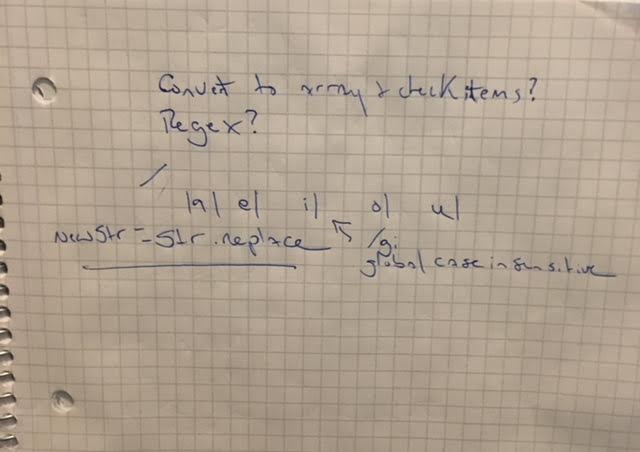 Convert to array & check items?
Regex?
/ |a| e| i| o| u|
newStr = str.replace /gi
global case insensitive